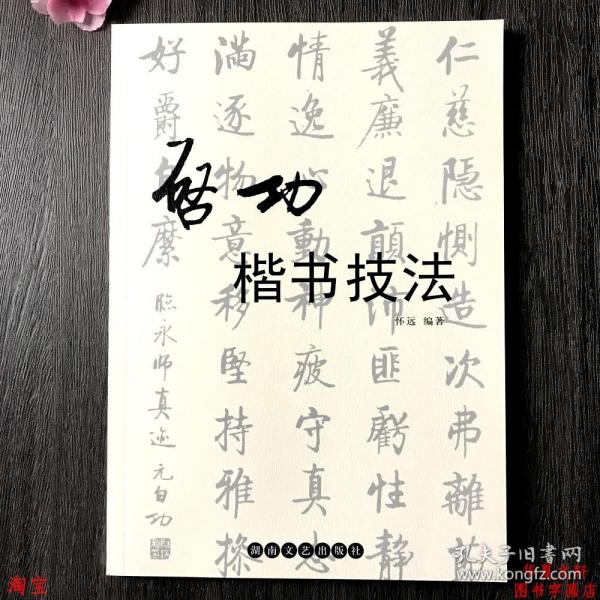 仁慈隱惻造次弗離節
義廉退顛沛匪虧性靜
情逸心動神疲守真志
滿逐物意移堅持雅操
好爵自縻
臨永師真迹元白功
啓功
楷书技法
怀远 编著
湖南文艺出版社
淘宝
孔夫子旧书网
www.kongfz.com
图书字画店